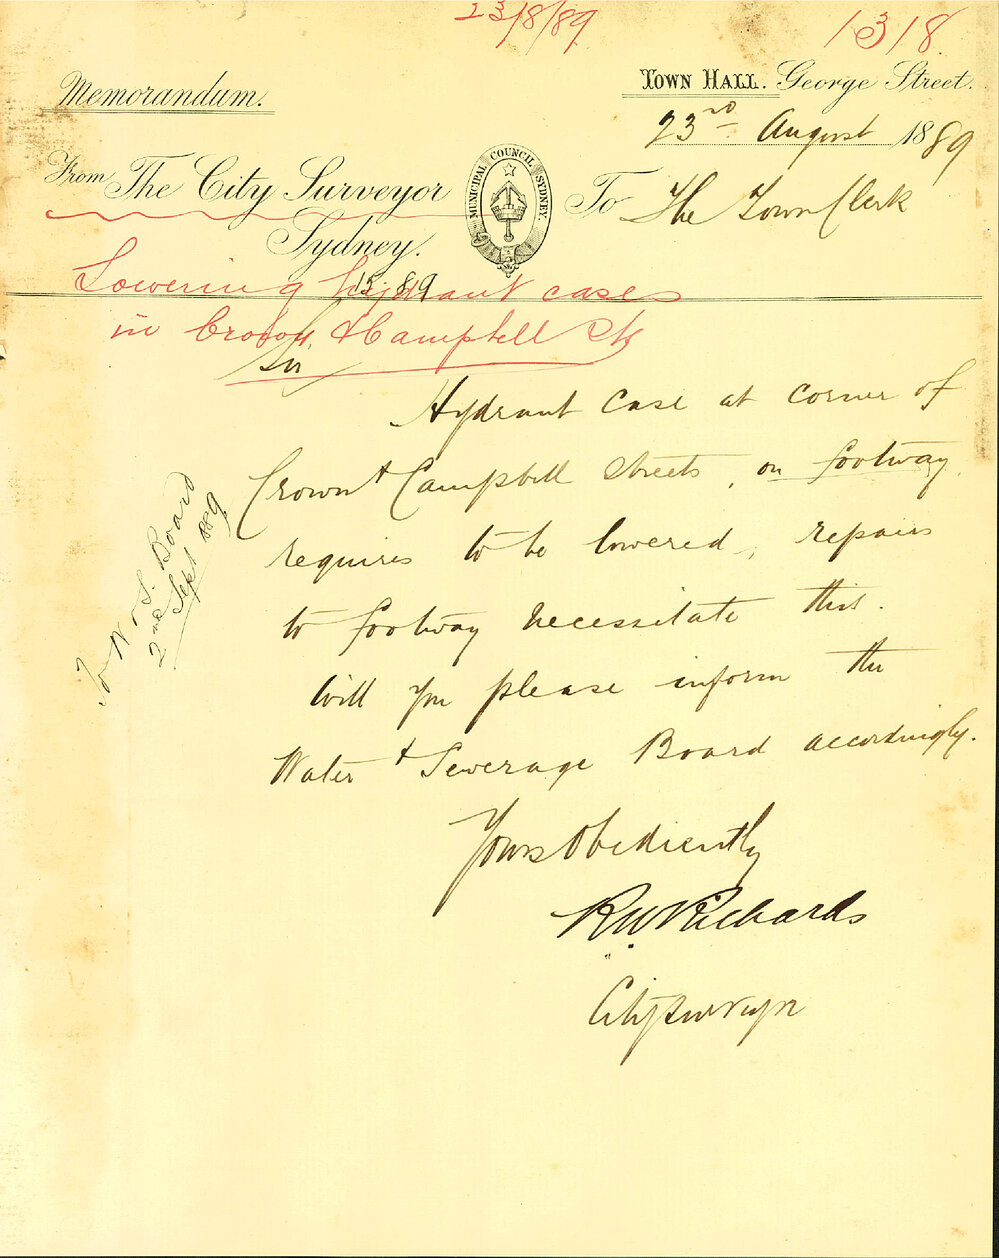 23/8/89
1318
Memorandum.
TOWN HALL. George Street.
23rd August 1889
From The City Surveyor
Sydney.
MUNICIPAL COUNCIL SYDNEY.
To The Town Clerk
Lowering hydrant cases
in Crown & Campbell Sts
Sir
Hydrant case at corner of
Crown & Campbell Streets, on footway
requires to be lowered, repairs
to footway necessitate this.
Will you please inform the
Water & Sewerage Board accordingly.
Yours Obediently
R W Richards
City Surveyor
To W & S. Board
2nd Sept 1889